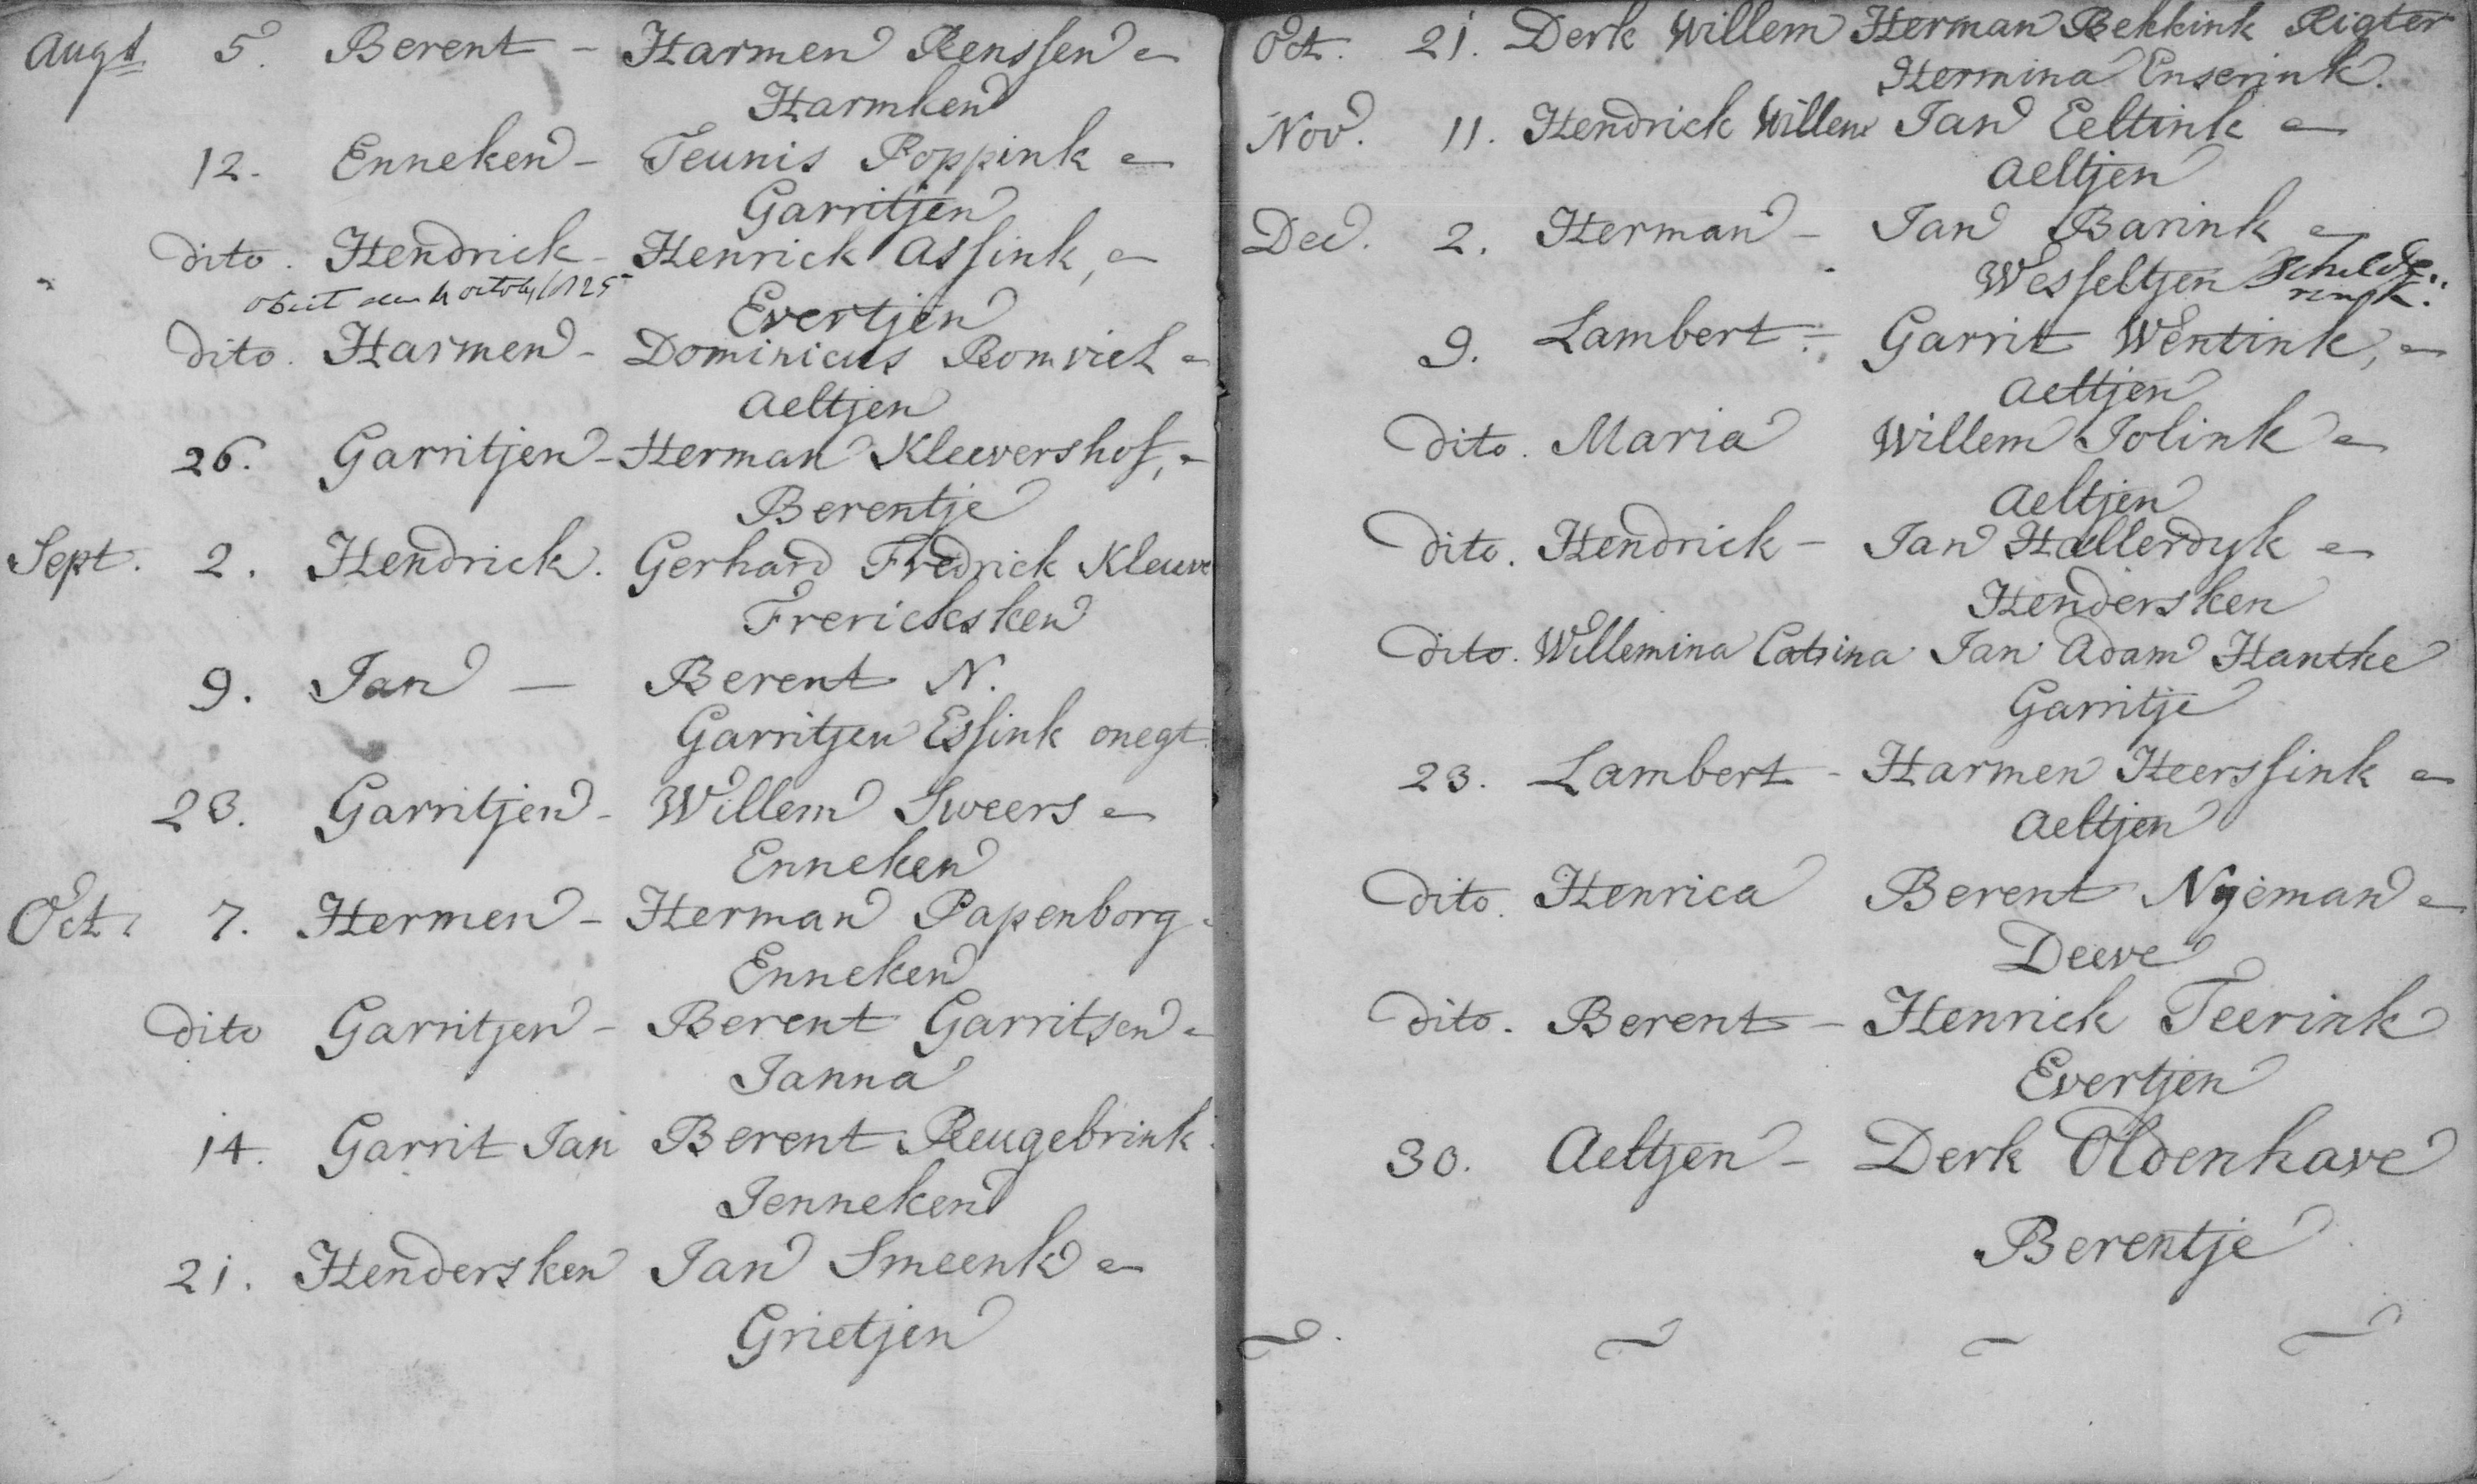 Augt 5. Berent - Harmen Renssen e
Harmken
12. Enneken - Teunis Poppink e
Garritjen
dito. Hendrick - Henrick Assink, e
obiit den 4 octob
Evertjen
dito. Harmen - Dominicus Romviel e
Aeltjen
26. Garritjen - Herman Kleevershof, e
Berentje
Sept. 2. Hendrick. Gerhard Fredrick Kleuve
Frericksken
9. Jan - Berent N.
Garritjen Essink onegt.
23. Garritjen - Willem Sweers e
Enneken
Oct. 7. Hermen - Herman Papenborg e
Enneken
dito Garritjen - Berent Garritsen e
Janna
14. Garrit Jan Berent Reugebrink
Jenneken
21. Hendersken Jan Smeenk e
Grietjen
Oct. 21. Derk Willem Herman Bekkink Rigter
Hermina Enserink.
Nov. 11. Hendrick Willem Jan Eeltink e
Aeltjen
Dec. 2. Herman - Jan Barink e
Wesseltjen Schilde
rink.
9. Lambert - Garrit Wentink, e
Aeltjen
dito. Maria Willem Jolink e
Aeltjen
dito. Hendrick - Jan Hællerdyk e
Hendersken
dito. Willemina Catrina Jan Adam Hantke
Garritje
23. Lambert - Harmen Heerssink e
Aeltjen
dito. Henrica Berent Nyeman e
Deeve
dito. Berent - Henrick Teerink
Evertjen
30. Aeltjen - Derk Oldenhave
Berentje